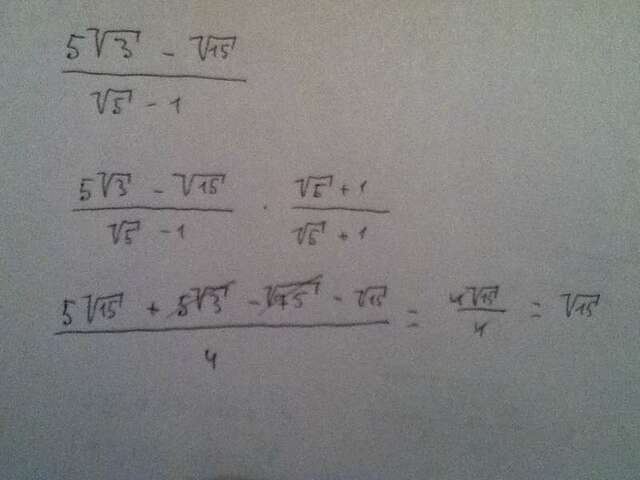 5√3 - √15
√5 - 1
5√3 - √15 · √5 + 1
√5 - 1 √5 + 1
5√15 + 5√3 - √75 - √15 = 4√15 = √15
4 4